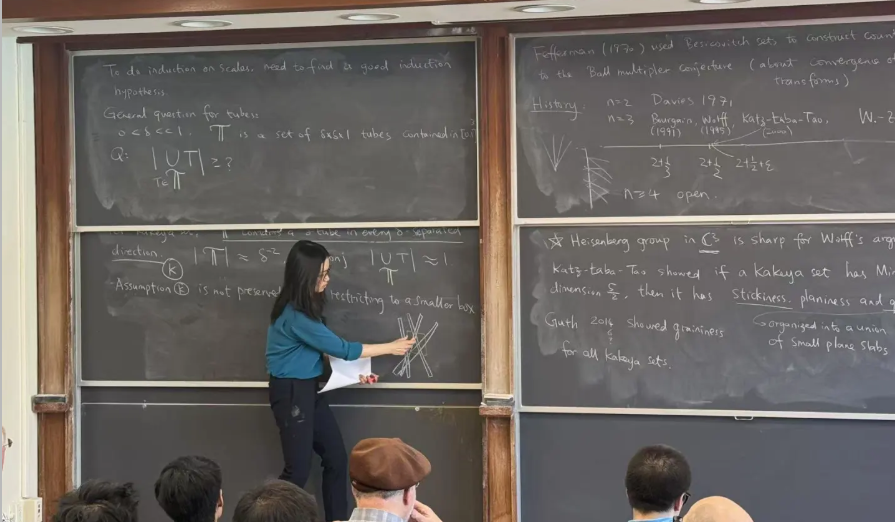 To do induction on scales, need to find a good induction
hypothesis.
General question for tubes:
0 < δ << 1. 𝕋 is a set of δxδx1 tubes contained in
Q: | ∪ T | ≥ ?
T∈𝕋
Kakeya 𝕋 contains a δ-tube in every δ-separated
direction. |𝕋| ≈ δ⁻² | ∪ T | ≈ 1
𝕋
(K)
- Assumption (K) is not preserved restricting to a smaller box
Fefferman (1970) used Besicovitch sets to construct
to the Ball multiplier conjecture (about convergence of
transforms)
History. n=2 Davies 1971
n=3 Bourgain, Wolff, Katz-Łaba-Tao, W.-
(1991) (1995) (2000)
2+1/3 2+1/2 2+1/2+ε
n≥4 open.
☆ Heisenberg group in ℂ³ is sharp for Wolff's
Katz-Łaba-Tao showed if a Kakeya set has
dimension 5/2, then it has stickiness, planiness and
Guth 2016 showed graininess
for all Kakeya sets.
organized into a union
of small plane slabs